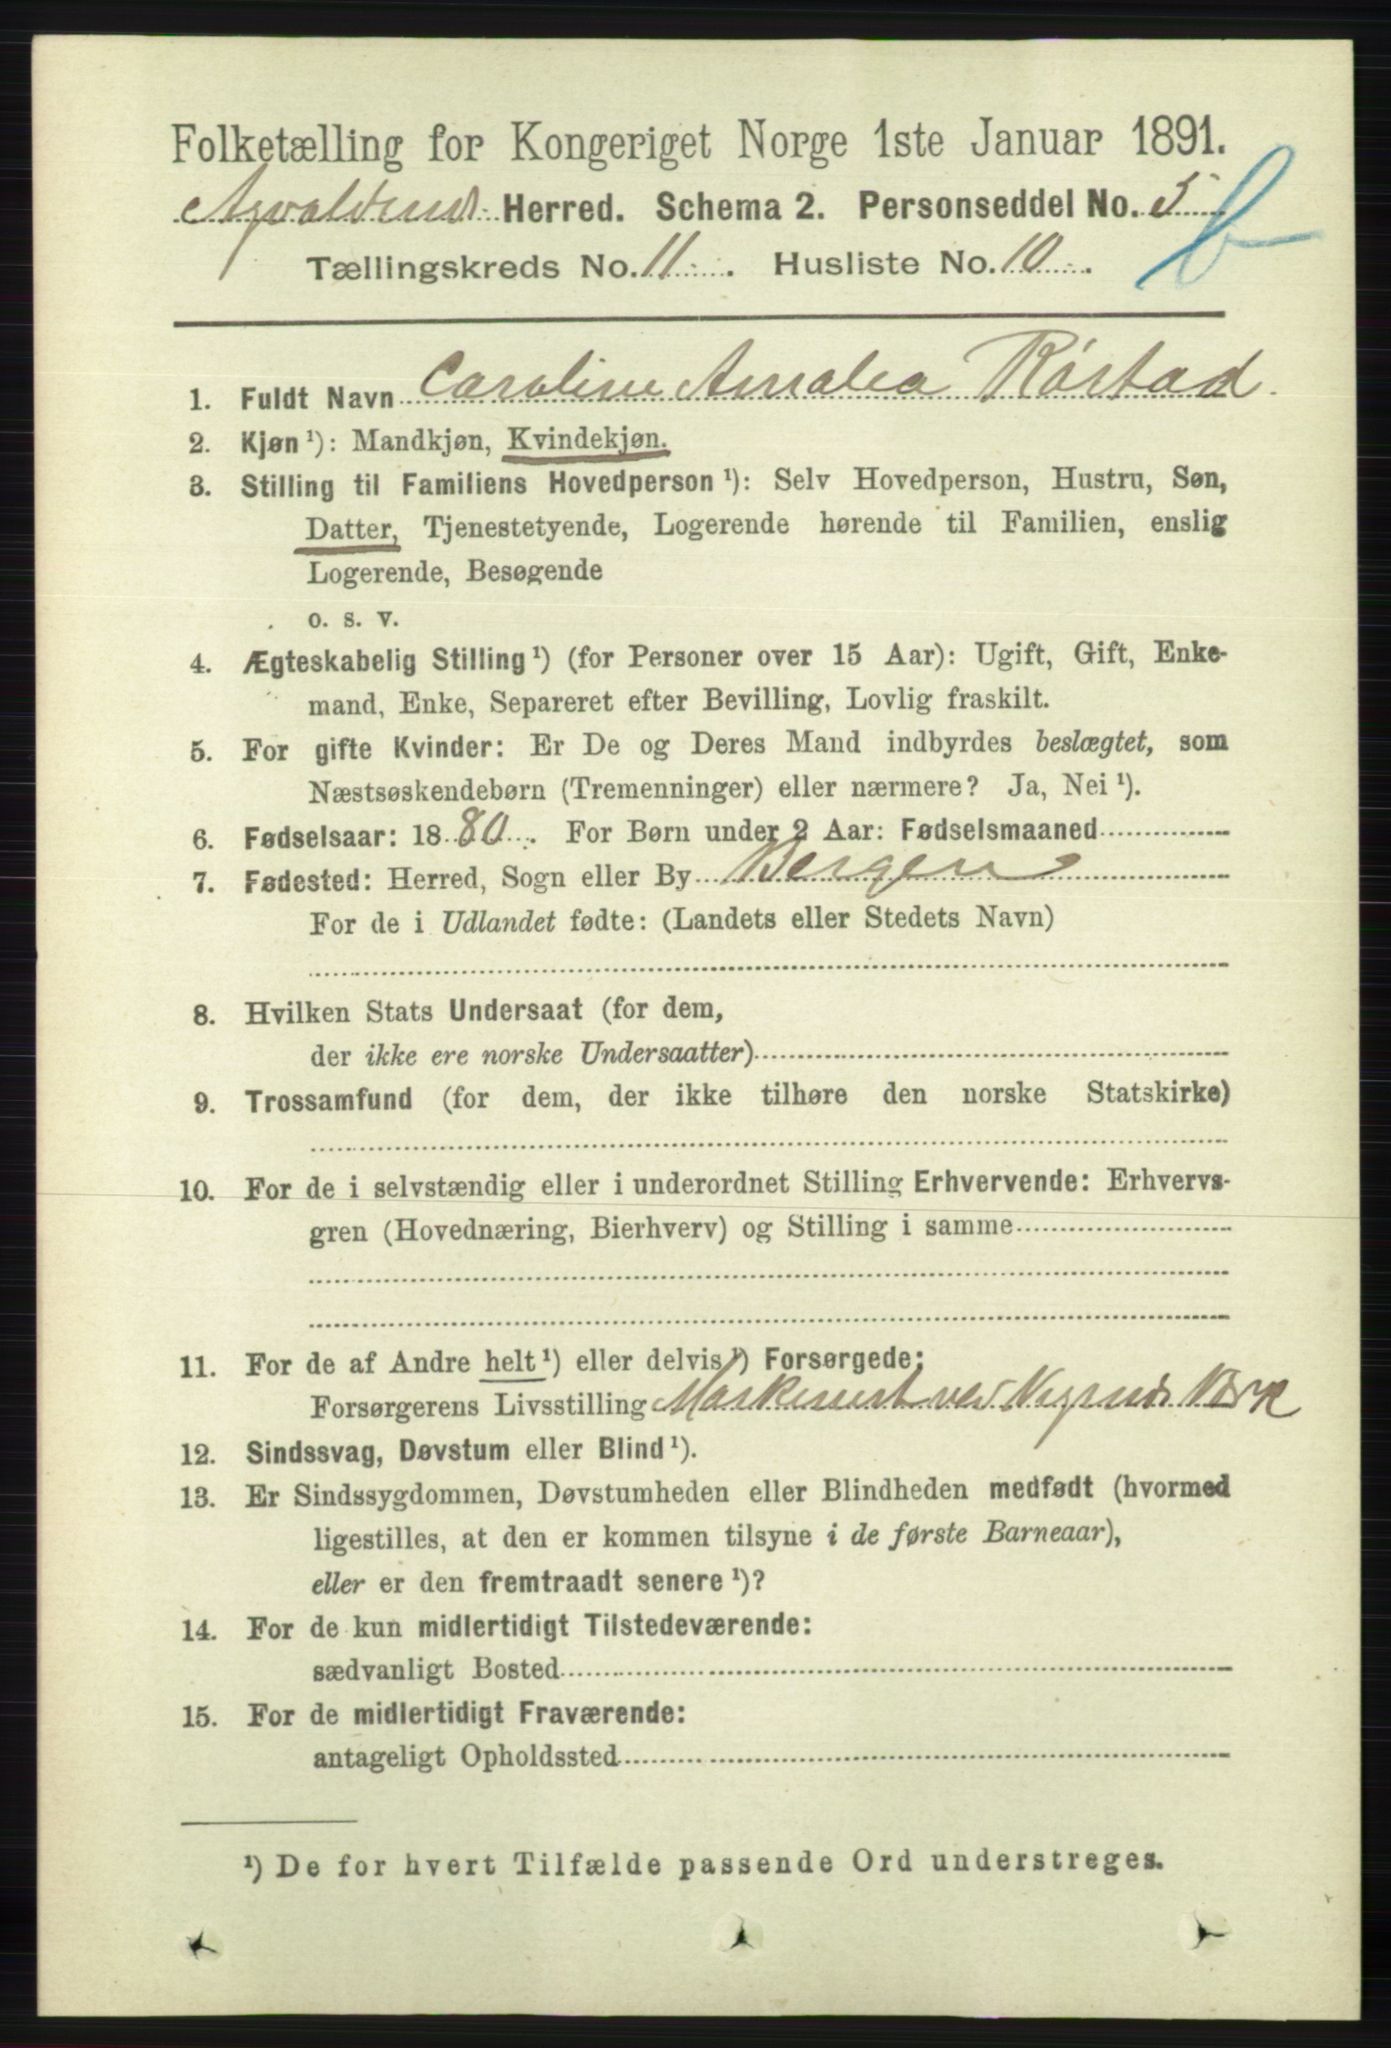 Folketælling for Kongeriget Norge 1ste Januar 1891.
Herred. Schema 2. Personseddel No. 5
Tællingskreds No. 11. Husliste No. 10.
b
1. Fuldt Navn Caroline Amalia Rörstad.
2. Kjøn ¹): Mandkjøn, Kvindekjøn.
3. Stilling til Familiens Hovedperson ¹): Selv Hovedperson, Hustru, Søn,
Datter, Tjenestetyende, Logerende hørende til Familien, enslig
Logerende, Besøgende
o. s. v.
4. Ægteskabelig Stilling ¹) (for Personer over 15 Aar): Ugift, Gift, Enke-
mand, Enke, Separeret efter Bevilling, Lovlig fraskilt.
5. For gifte Kvinder: Er De og Deres Mand indbyrdes beslægtet, som
Næstsøskendebørn (Tremenninger) eller nærmere? Ja, Nei ¹).
6. Fødselsaar: 1880. For Børn under 2 Aar: Fødselsmaaned
7. Fødested: Herred, Sogn eller By Bergen
For de i Udlandet fødte: (Landets eller Stedets Navn)
8. Hvilken Stats Undersaat (for dem,
der ikke ere norske Undersaatter)
9. Trossamfund (for dem, der ikke tilhøre den norske Statskirke)
10. For de i selvstændig eller i underordnet Stilling Erhvervende: Erhvervs-
gren (Hovednæring, Bierhverv) og Stilling i samme
11. For de af Andre helt ¹) eller delvis ¹) Forsørgede:
Forsørgerens Livsstilling Maskinist ved Vigsnæs Værk
12. Sindssvag, Døvstum eller Blind ¹).
13. Er Sindssygdommen, Døvstumheden eller Blindheden medfødt (hvormed
ligestilles, at den er kommen tilsyne i de første Barneaar),
eller er den fremtraadt senere ¹)?
14. For de kun midlertidigt Tilstedeværende:
sædvanligt Bosted
15. For de midlertidigt Fraværende:
antageligt Opholdssted
¹) De for hvert Tilfælde passende Ord understreges.